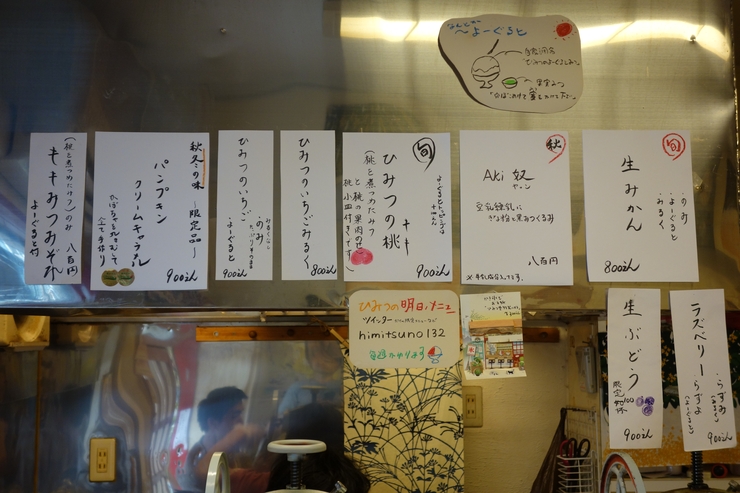 〜よーぐると
旬
生みかん
・のみ
・よーぐると
・みるく
800えん
秋
Aki 奴
豆乳練乳に
きな粉と黒みつくるみ
八百円
旬
ひみつの桃
キキ
(桃と煮つめたみつ
と桃の果肉のせ
桃小皿付きです)
900えん
ひみつのいちごみるく
800えん
ひみつのいちご
・のみ
・よーぐると
900えん
秋冬の味 〜限定品〜
パンプキン
クリームキャラメル
かぼちゃを丸ごとむして
全て手作り
900えん
(桃と煮つめたみつ)のみ 八百円
キキみつみぞれ
よーぐると付
ひみつの明日メニュー
ツイッター
himitsuno132
毎週かわります
生ぶどう
限定
900えん
ラズベリー
・らずみ
(みるく)
・らずよ
(よーぐると)
900えん